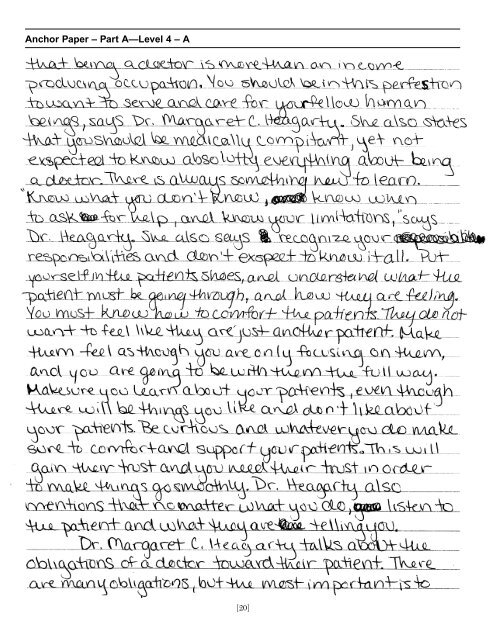 Anchor Paper – Part A—Level 4 – A
that being a doctor is more than an income
producing occupation. You should be in this perfestion
to want to serve and care for your fellow human
beings, says Dr. Margaret C. Heagarty. She also states
that you should be medically compitant, yet not
exspected to know absolutly everything about being
a doctor. There is always something new to learn.
"Know what you don't know, know when
to ask for help, and know your limitations," says
Dr. Heagarty. She also says recognize your
responsibilities and don't exspect to know it all. Put
yourself in the patients shoes, and understand what the
patient must be going through, and how they are feeling.
You must know how to comfort the patients. They do not
want to feel like they are just another patient. Make
them feel as though you are only focusing on them,
and you are going to be with them the full way.
Makesure you learn about your patients, even though
there will be things you like and don't like about
your patients. Be curtious and whatever you do make
sure to comfort and support your patients. This will
gain their trust and you need their trust in order
to make things go smoothly. Dr. Heagarty also
mentions that no matter what you do, listen to
the patient and what they are telling you.
Dr. Margaret C. Heagarty talks about the
obligations of a doctor toward their patient. There
are many obligations, but the most important is to
[20]